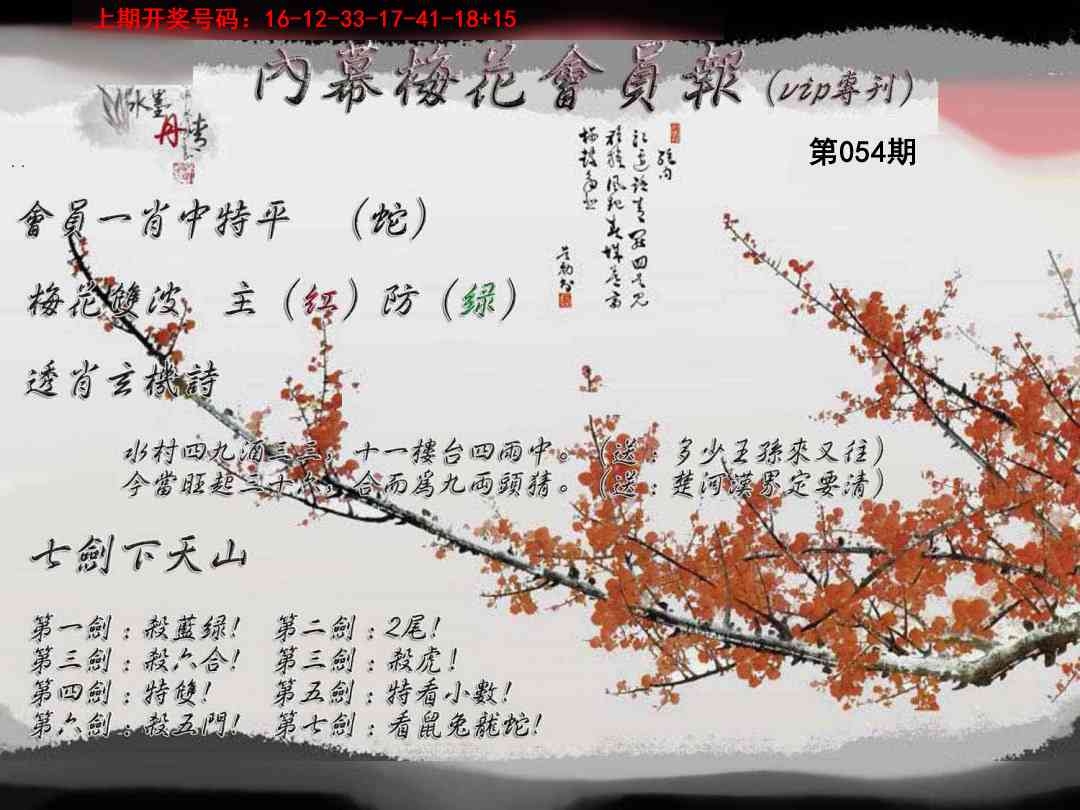 上期开奖号码：16-12-33-17-41-18+15
內幕梅花會員報（vip專刊）
水墨
丹青
第054期
會員一肖中特平 （蛇）
梅花雙波 主（红）防（绿）
透肖玄機詩
水村四九酒三三，十一樓台四雨中。（送：多少王孫來又往）
今當旺起三十六，合而為九両頭猜。（送：楚河漢界定要清）
七劍下天山
第一劍：殺藍绿！ 第二劍：2尾！
第三劍：殺六合！ 第三劍：殺虎！
第四劍：特雙！ 第五劍：特看小數！
第六劍：殺五門！ 第七劍：看鼠兔龍蛇！